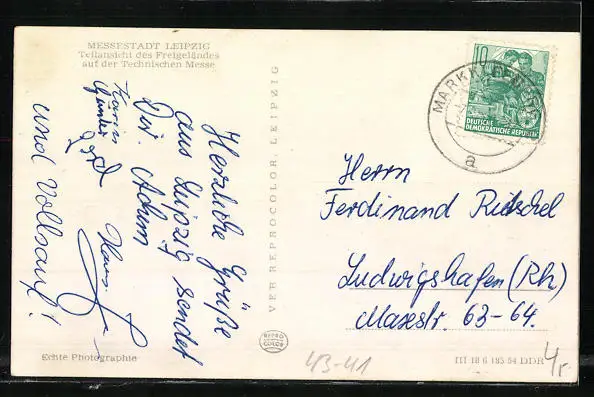 MESSESTADT LEIPZIG
Teilansicht des Freigeländes
auf der Technischen Messe
Herzliche Grüße
aus Leipzig sendet
Dir Achim
Karin
Günter
Hans
und Vollsauf!
VEB REPROCOLOR, LEIPZIG
10
DEUTSCHE
DEMOKRATISCHE REPUBLIK
MARKK
a
Herrn
Ferdinand Rütschel
Ludwigshafen (Rh)
Maxestr. 63-64.
REPRO
COLOR
Echte Photographie
43-41
III 18 6 185 54 DDR